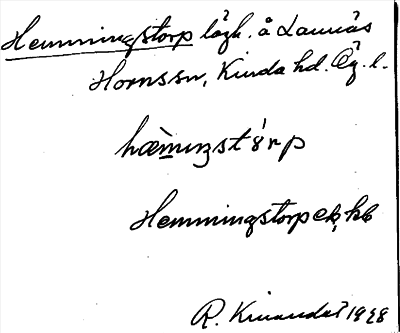 Hemmingstorp lägh. å Launäs
Hornssn, Kinda hd. Ög. l.
Hemmingstorp ek, hb
R. Kinander 1928